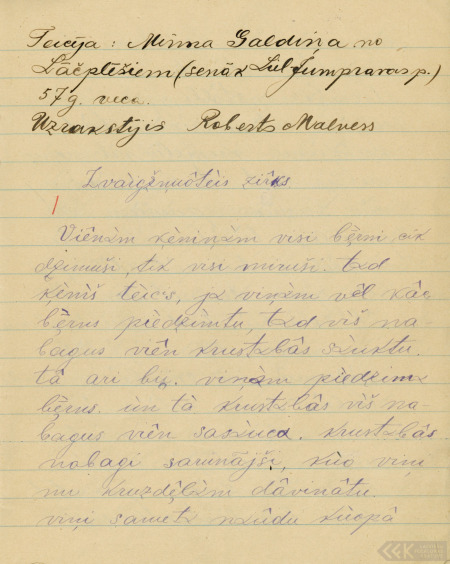 Teicēja: Minna Galdiņa no
Lāčplēšiem (senāk Liel-Jumpravas p.)
57 g. veca.
Uzrakstījis Roberts Malvess
Zvaigžņuôtais zirks
1
Viênam ķèniņam visi bērni cik
dzimuši, tik visi miruši. tad
ķèniš teics, ja viņam vêl kāc
bērns piêdzimtu, tad viš na-
bagus viên krustabâs sàuktu
tâ ari bij. viņam piêdzima
bērns. ùn tâ krustabâs viš na-
bagus viên sasàuca. krustabâs
nabagi sarunājši, kùo viņi
nu kruzdêlam dâvinâtu.
viņi sameta nàudu kùopâ